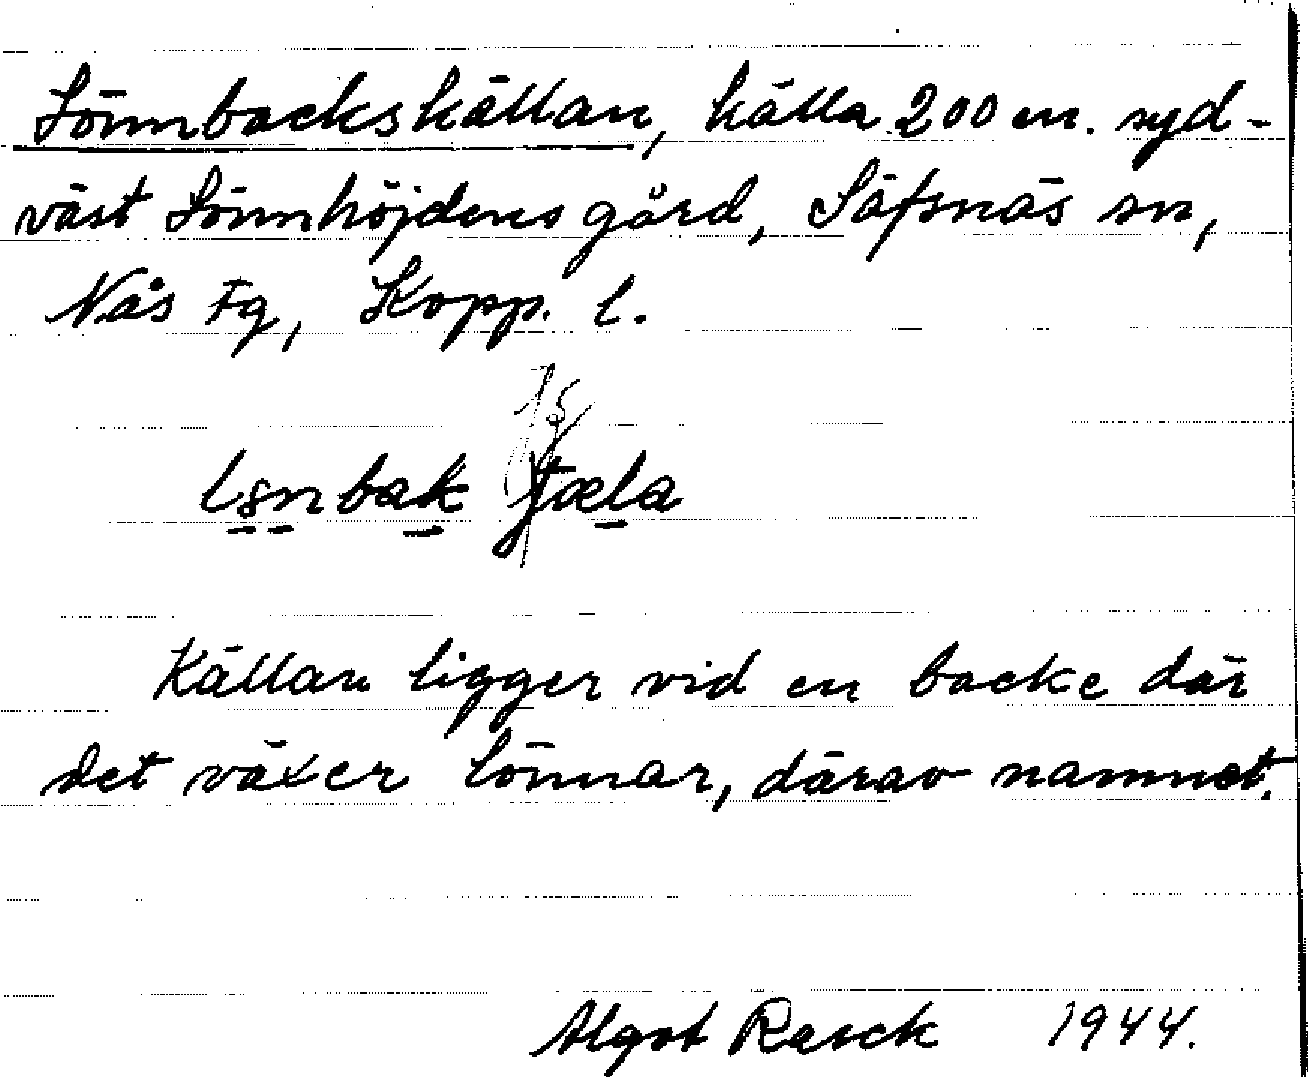 Lönnbackskällan, källa 200 m. syd-
väst Lönnhöjdens gård, Säfsnäs sn,
Nås Fg, Kopp. l.
Källan ligger vid en backe där
det växer lönnar, därav namnet.
Algot Rasck 1944.